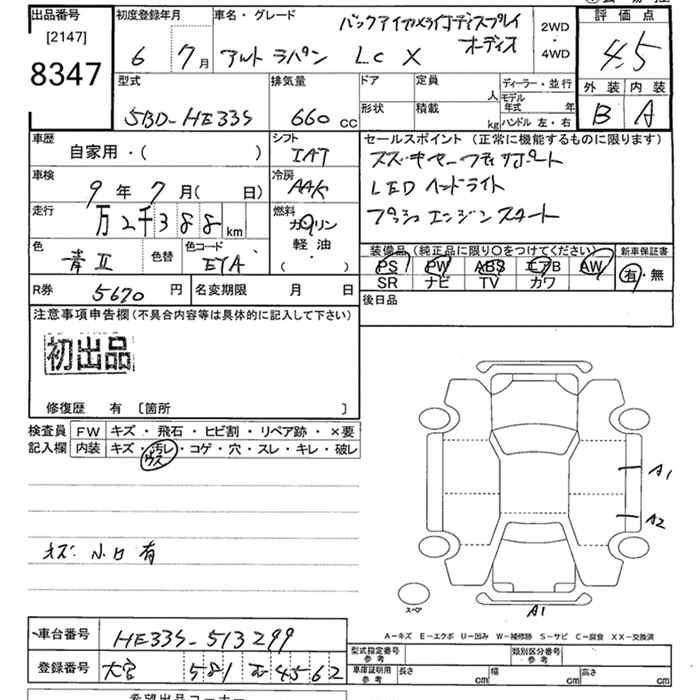 出品番号 初度登録年月 車名・グレード バックアイカメライ付ディスプレイ 評価点
[2147] オーディス 2WD
8347 6 7月 アルト ラパン LC X 4WD 4.5
型式 排気量 ドア 定員 人 ディーラー・並行 外装 内装
5BD-HE33S 660 CC 形状 積載 kg モデル年式 年 B A
ハンドル 左・右
車歴 シフト セールスポイント(正常に機能するものに限ります)
自家用・( ) IAT スズキセーフティサポート
車検 9年 7月( 日) 冷房 AAC LEDヘッドライト
走行 万2千388km 燃料 ガソリン プッシュエンジンスタート
軽油
( )
色 青II 色替 色コード 装備品(純正品に限り○をつけてください) 新車保証書
PS PW ABS エアB AW 有・無
SR ナビ TV カワ
R券 5670円 名変期限 月 日 後日品
注意事項申告欄(不具合内容等は具体的に記入して下さい)
初出品
修復歴 有 〔箇所 〕
検査員 FW キズ・飛石・ヒビ割・リペア跡・×要
記入欄 内装 キズ・汚レ・コゲ・穴・スレ・キレ・破レ
ウス
A1
A2
キズ.小凹有
スペア A1
A-キズ E-エクボ U-凹み W-補修跡 S-サビ C-腐食 XX-交換済
車台番号 HE33S-513299 型式指定番号 参考 類別区分番号 参考
登録番号 大宮 581 む 4562 車庫証明用 参考 長さ cm 幅 cm 高さ cm
希望出品コーナー